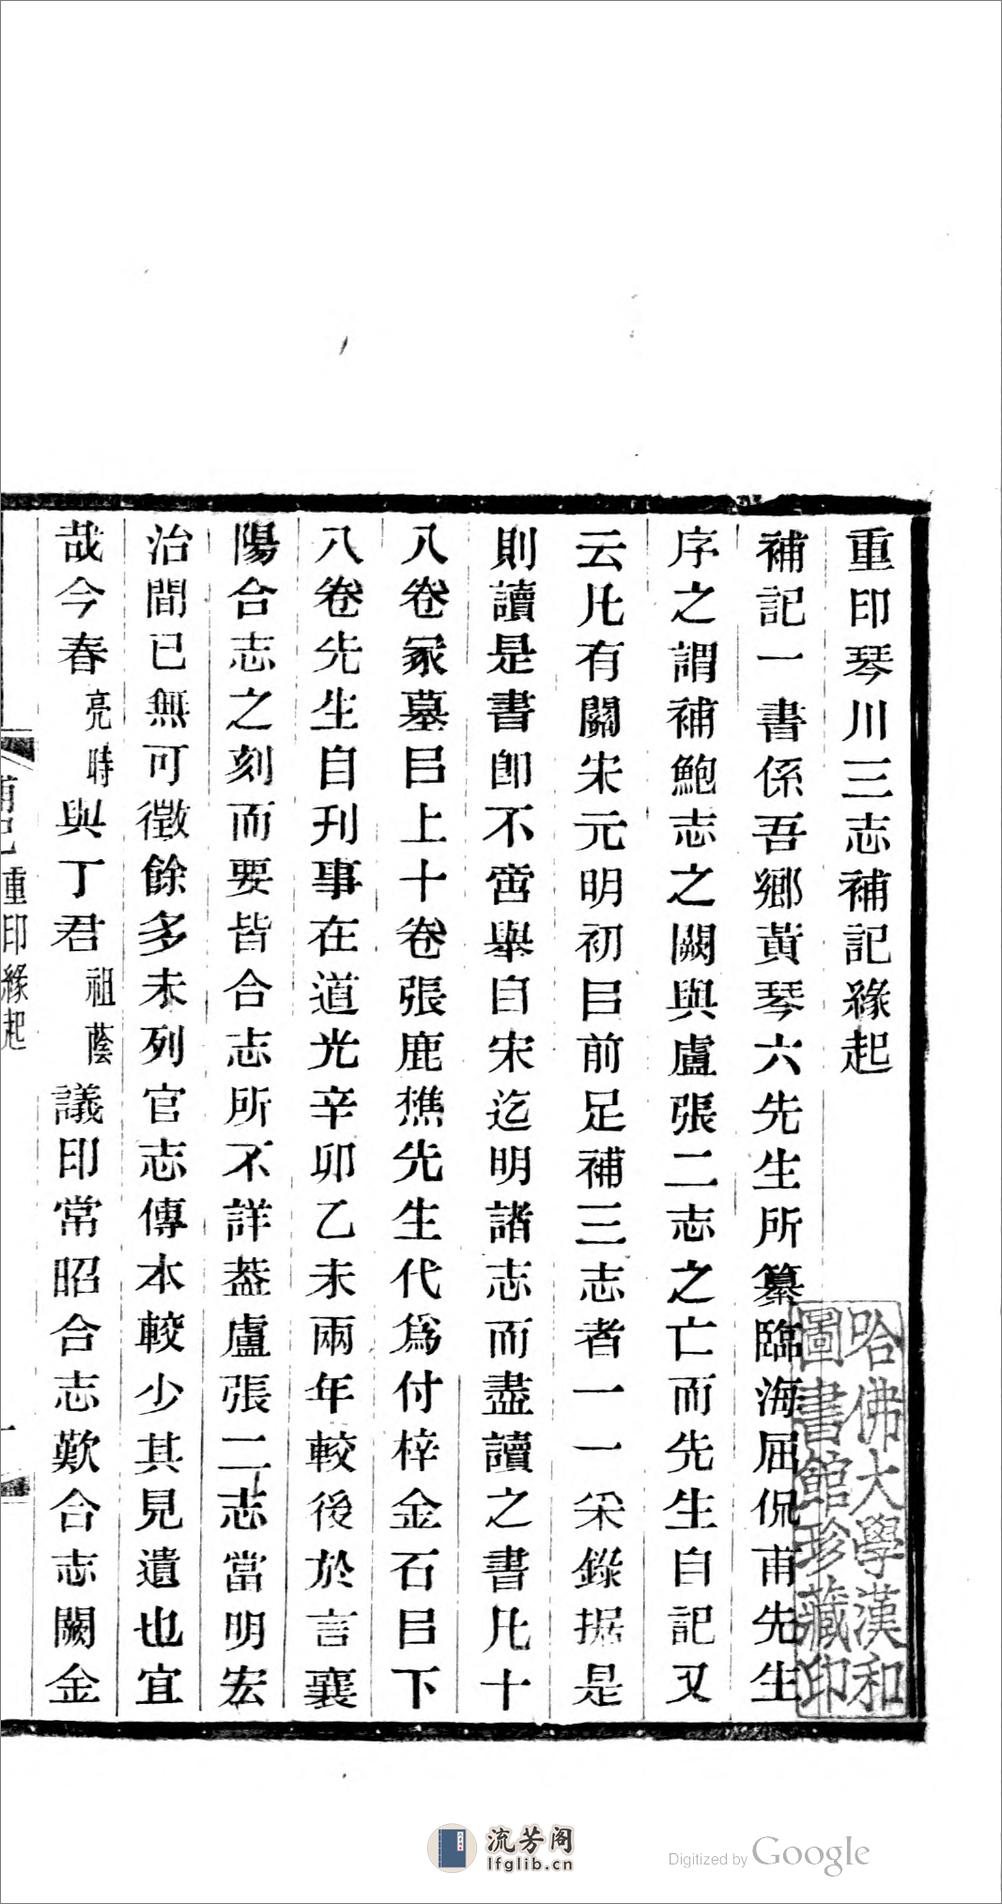 重印琴川三志補記緣起
補記一書係吾鄉黃琴六先生所纂臨海屈侃甫先生
序之謂補鮑志之闕與盧張二志之亡而先生自記又
云凡有關宋元明初㠯前足補三志者一一采錄据是
則讀是書卽不啻舉自宋迄明諸志而盡讀之書凡十
八卷冢墓㠯上十卷張鹿樵先生代爲付梓金石㠯下
八卷先生自刊事在道光辛卯乙未兩年較後於言襄
陽合志之刻而要皆合志所不詳葢盧張二志當明宏
治間已無可徵餘多未列官志傳本較少其見遺也宜
哉今春亮時與丁君祖蔭議印常昭合志歎合志闕金
補記 重印緣起 一
哈佛大學漢和
圖書館珍藏印
流芳阁
lfglib.cn
Digitized by Google